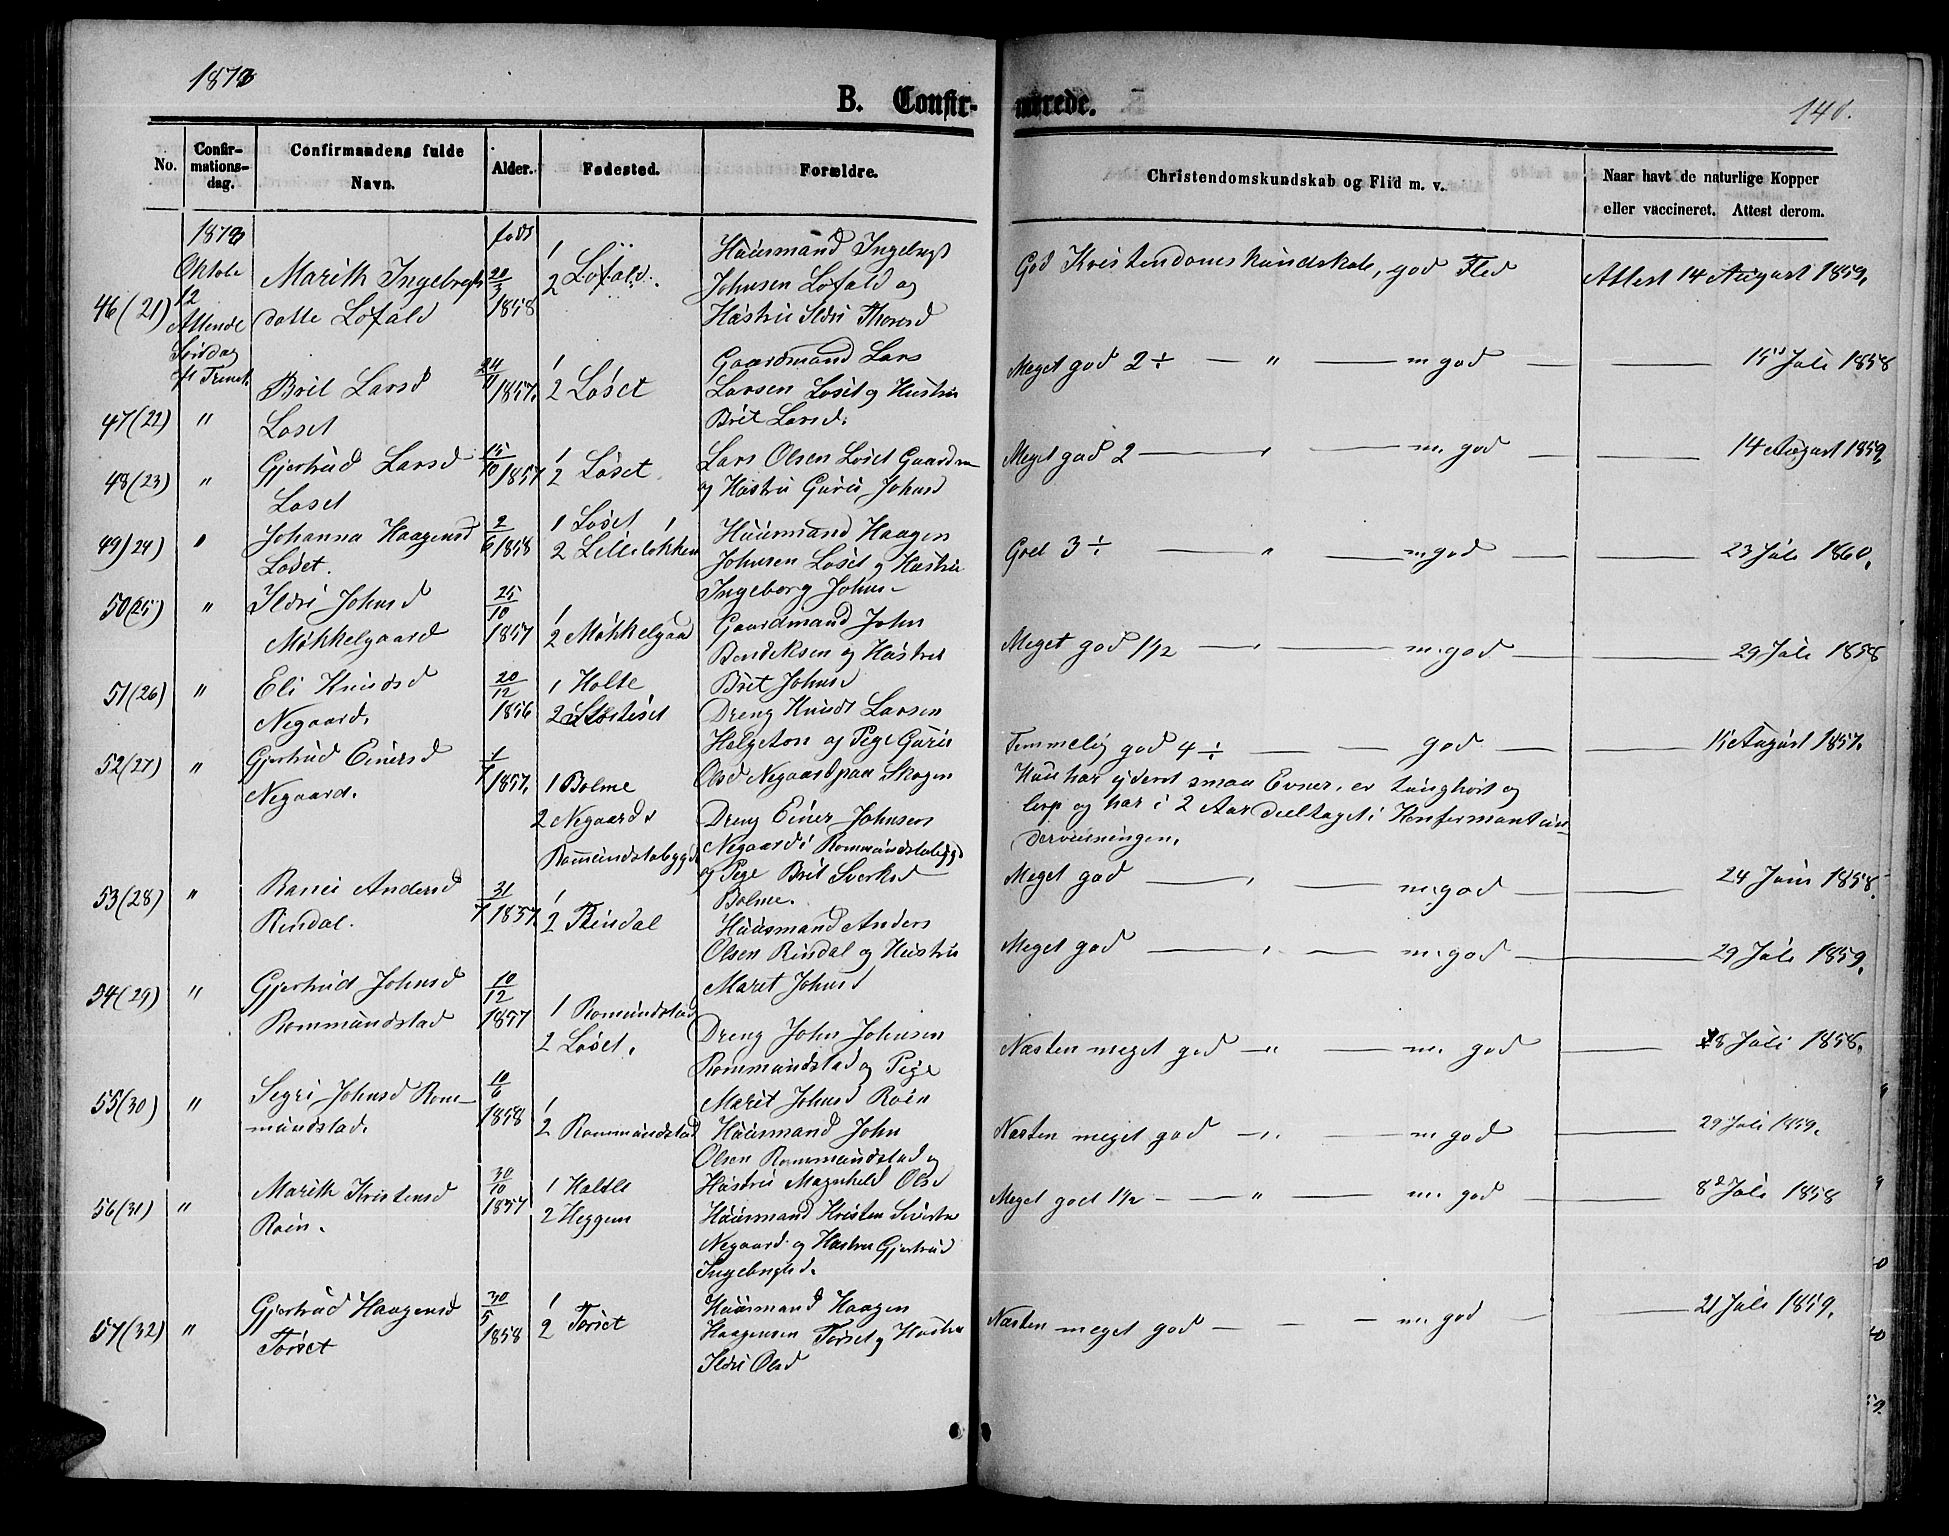 1873
B. Confir-
merede.
140.
No.
Confir-
mations-
dag.
Confirmandens fulde
Navn.
Alder.
Fødested.
Forældre.
Christendomskundskab og Flid m. v.
Naar havt de naturlige Kopper
eller vaccineret. Attest derom.
1873
Oktobe
12
Attende
Søndag
født
46(21)
Marith Ingebregts
datte Løfald
20/3
1858
1
2 Løfald.
Huusmand Ingebregt
Johnsen Løfald og
Hustru Ildri Thoresd
God Kristendomskundskab, god Flid
Attest 14 August 1859.
47(22) "
Brit Larsd
Løset
1857.
1
2 Løset
Gaardmand Lars
Larsen Løset og Hustru
Brit Larsd.
Meget god 2 ÷ — " — m god
15d Juli 1858
48(23) "
Gjertrud Larsd
Løset
15/10 1857
1
2 Løset
Lars Olsen Løset Gaardm
og Hustru Guru Johnsd
Meget god 2 — " — m. god
14 August 1859.
49(24) "
Johanna Haagensd
Løset.
2/6 1858
1 Løset
2 Lilleløkken
Huusmand Haagen
Johnsen Løset og Hustru
Ingeborg Johns-
God 3 ÷ — " — m god
23 Juli 1860.
50(25) "
Ildri Johnsd
Møkkelgaard
25/10
1857
1
2 Møkkelgaa
Gaardmand John
Bendiksen og Hustru
Brit Johnsd
Meget god 1½ — " — m. god
29 Juli 1858
51(26) "
Eli Knudsd
Negaard.
20/12
1856
1 Holte
2
Dreng Knudt Larsen
Helgeton og Pige Guru
Olsd Negaard paa Skogen
Temmelig god 4 ÷ — — god
15 August 1857.
Hun har yderst smaa Evner, er tunghørt og
og har i 2 Aar deeltaget i Konfirmantun-
dervisningen.
52(27) "
Gjertrud Einersd
Negaard.
1857.
1 Bolme
2 Negaard i
Romundstabygd
Dreng Einer Johnsen
Negaard i Rommundstabygd
og Pige Brit Sverksd
Bolme.
Meget god — " — m. god
24 Juni 1858.
53(28) "
Ranei Andersd
Rindal.
31/7 1857.
1
2 Rindal
Huusmand Anders
Olsen Rindal og Hustru
Maret Johnsd
Meget god — " — m. god
29 Juli 1859.
54(29) "
Gjertrud Johnsd
Rommundstad
10/12
1857
1 Romundstad
2 Løset.
Dreng John Johnsen
Rommundstad og Pige
Marit Johnsd Røen
Næsten meget god — " — m. god
8 Juli 1858.
55(30) "
Segri Johnsd Rom-
mundstad.
10/6
1858
1
2 Rommundstad
Huusmand John
Olsen Rommundstad og
Hustru Magnhild Olsd
Næsten meget god — " — m. god
29 Juli 1859.
56(31) "
Marith Kristensd
Røen.
30/10
1857
1 Holtte
2 Heggem
Huusmand Kristen
Negaard og Hustru Gjertrud
Ingebrigtsd.
Meget godt 1½ — " — m. god
8d Juli 1858
57(32) "
Gjertrud Haagensd
Tørset
30/5
1858
1
2 Tørset
Huusmand Haagen
Haagensen Tørset og Hustru
Ildri Olsd
Næsten meget god — — — m. god
21 Juli 1859.